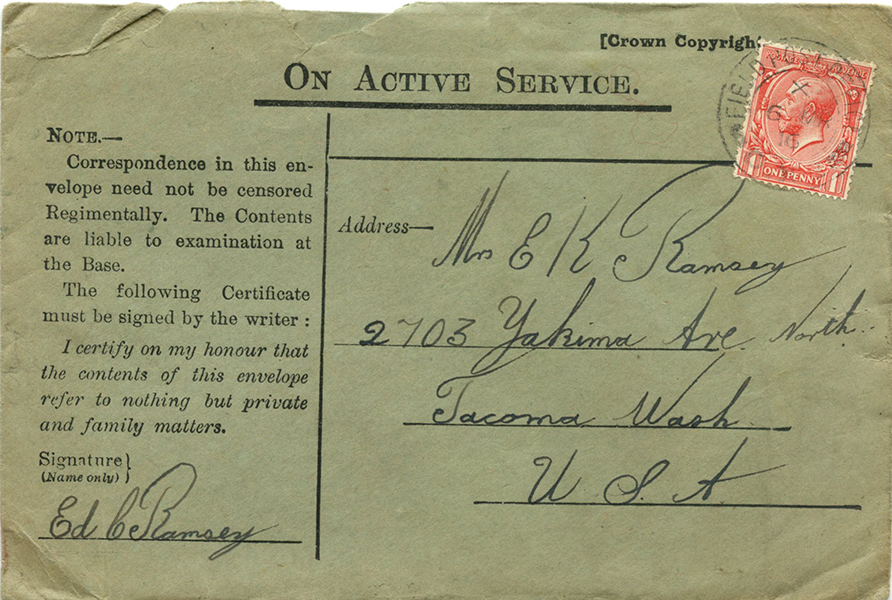 [Crown Copyrigh
ON ACTIVE SERVICE.
FIELD POST
X
6
16
ONE PENNY
1 1
NOTE.—
Correspondence in this en-
velope need not be censored
Regimentally. The Contents
are liable to examination at
the Base.
The following Certificate
must be signed by the writer :
I certify on my honour that
the contents of this envelope
refer to nothing but private
and family matters.
Signature}
(Name only)
Ed C Ramsey
Address—
Mrs E K Ramsey
2703 Yakima Ave. North.
Tacoma Wash.
U. S. A.